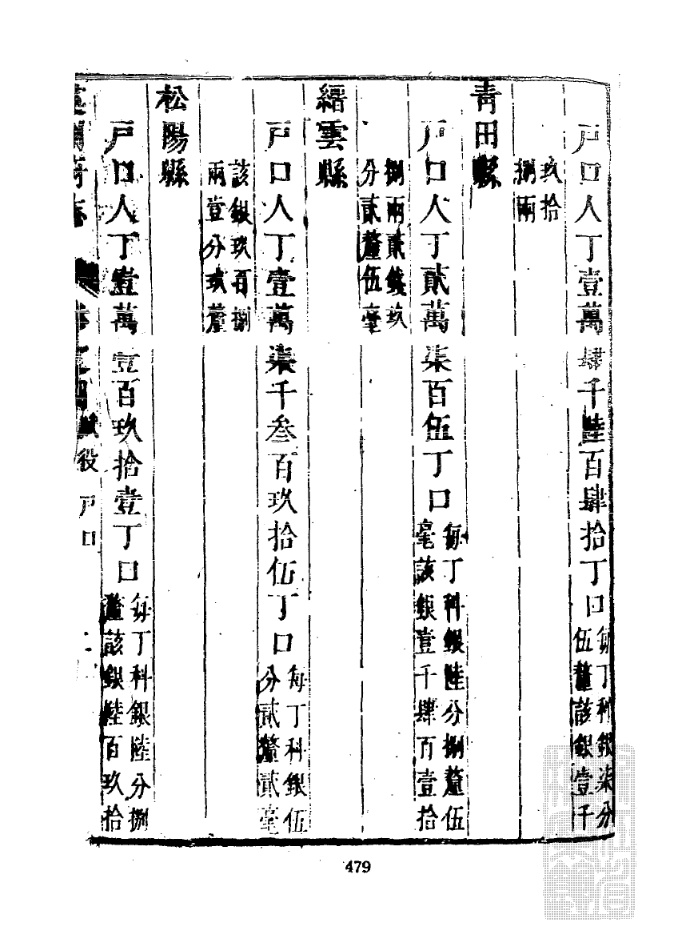 戸口人丁壹萬肆千陸百肆拾丁口每丁科銀柒分
伍釐該銀壹千
玖拾
捌兩
青田縣
戸口人丁貳萬柒百伍丁口每丁科銀陸分捌釐伍
毫該銀壹千肆百壹拾
捌兩貳錢玖
分貳釐伍毫
縉雲縣
戸口人丁壹萬柒千叁百玖拾伍丁口每丁科銀伍
分貳釐貳毫
該銀玖百捌
兩壹分玖釐
松陽縣
戸口人丁壹萬壹百玖拾壹丁口每丁科銀陸分捌
釐該銀陸百玖拾
賦役 戸口
479